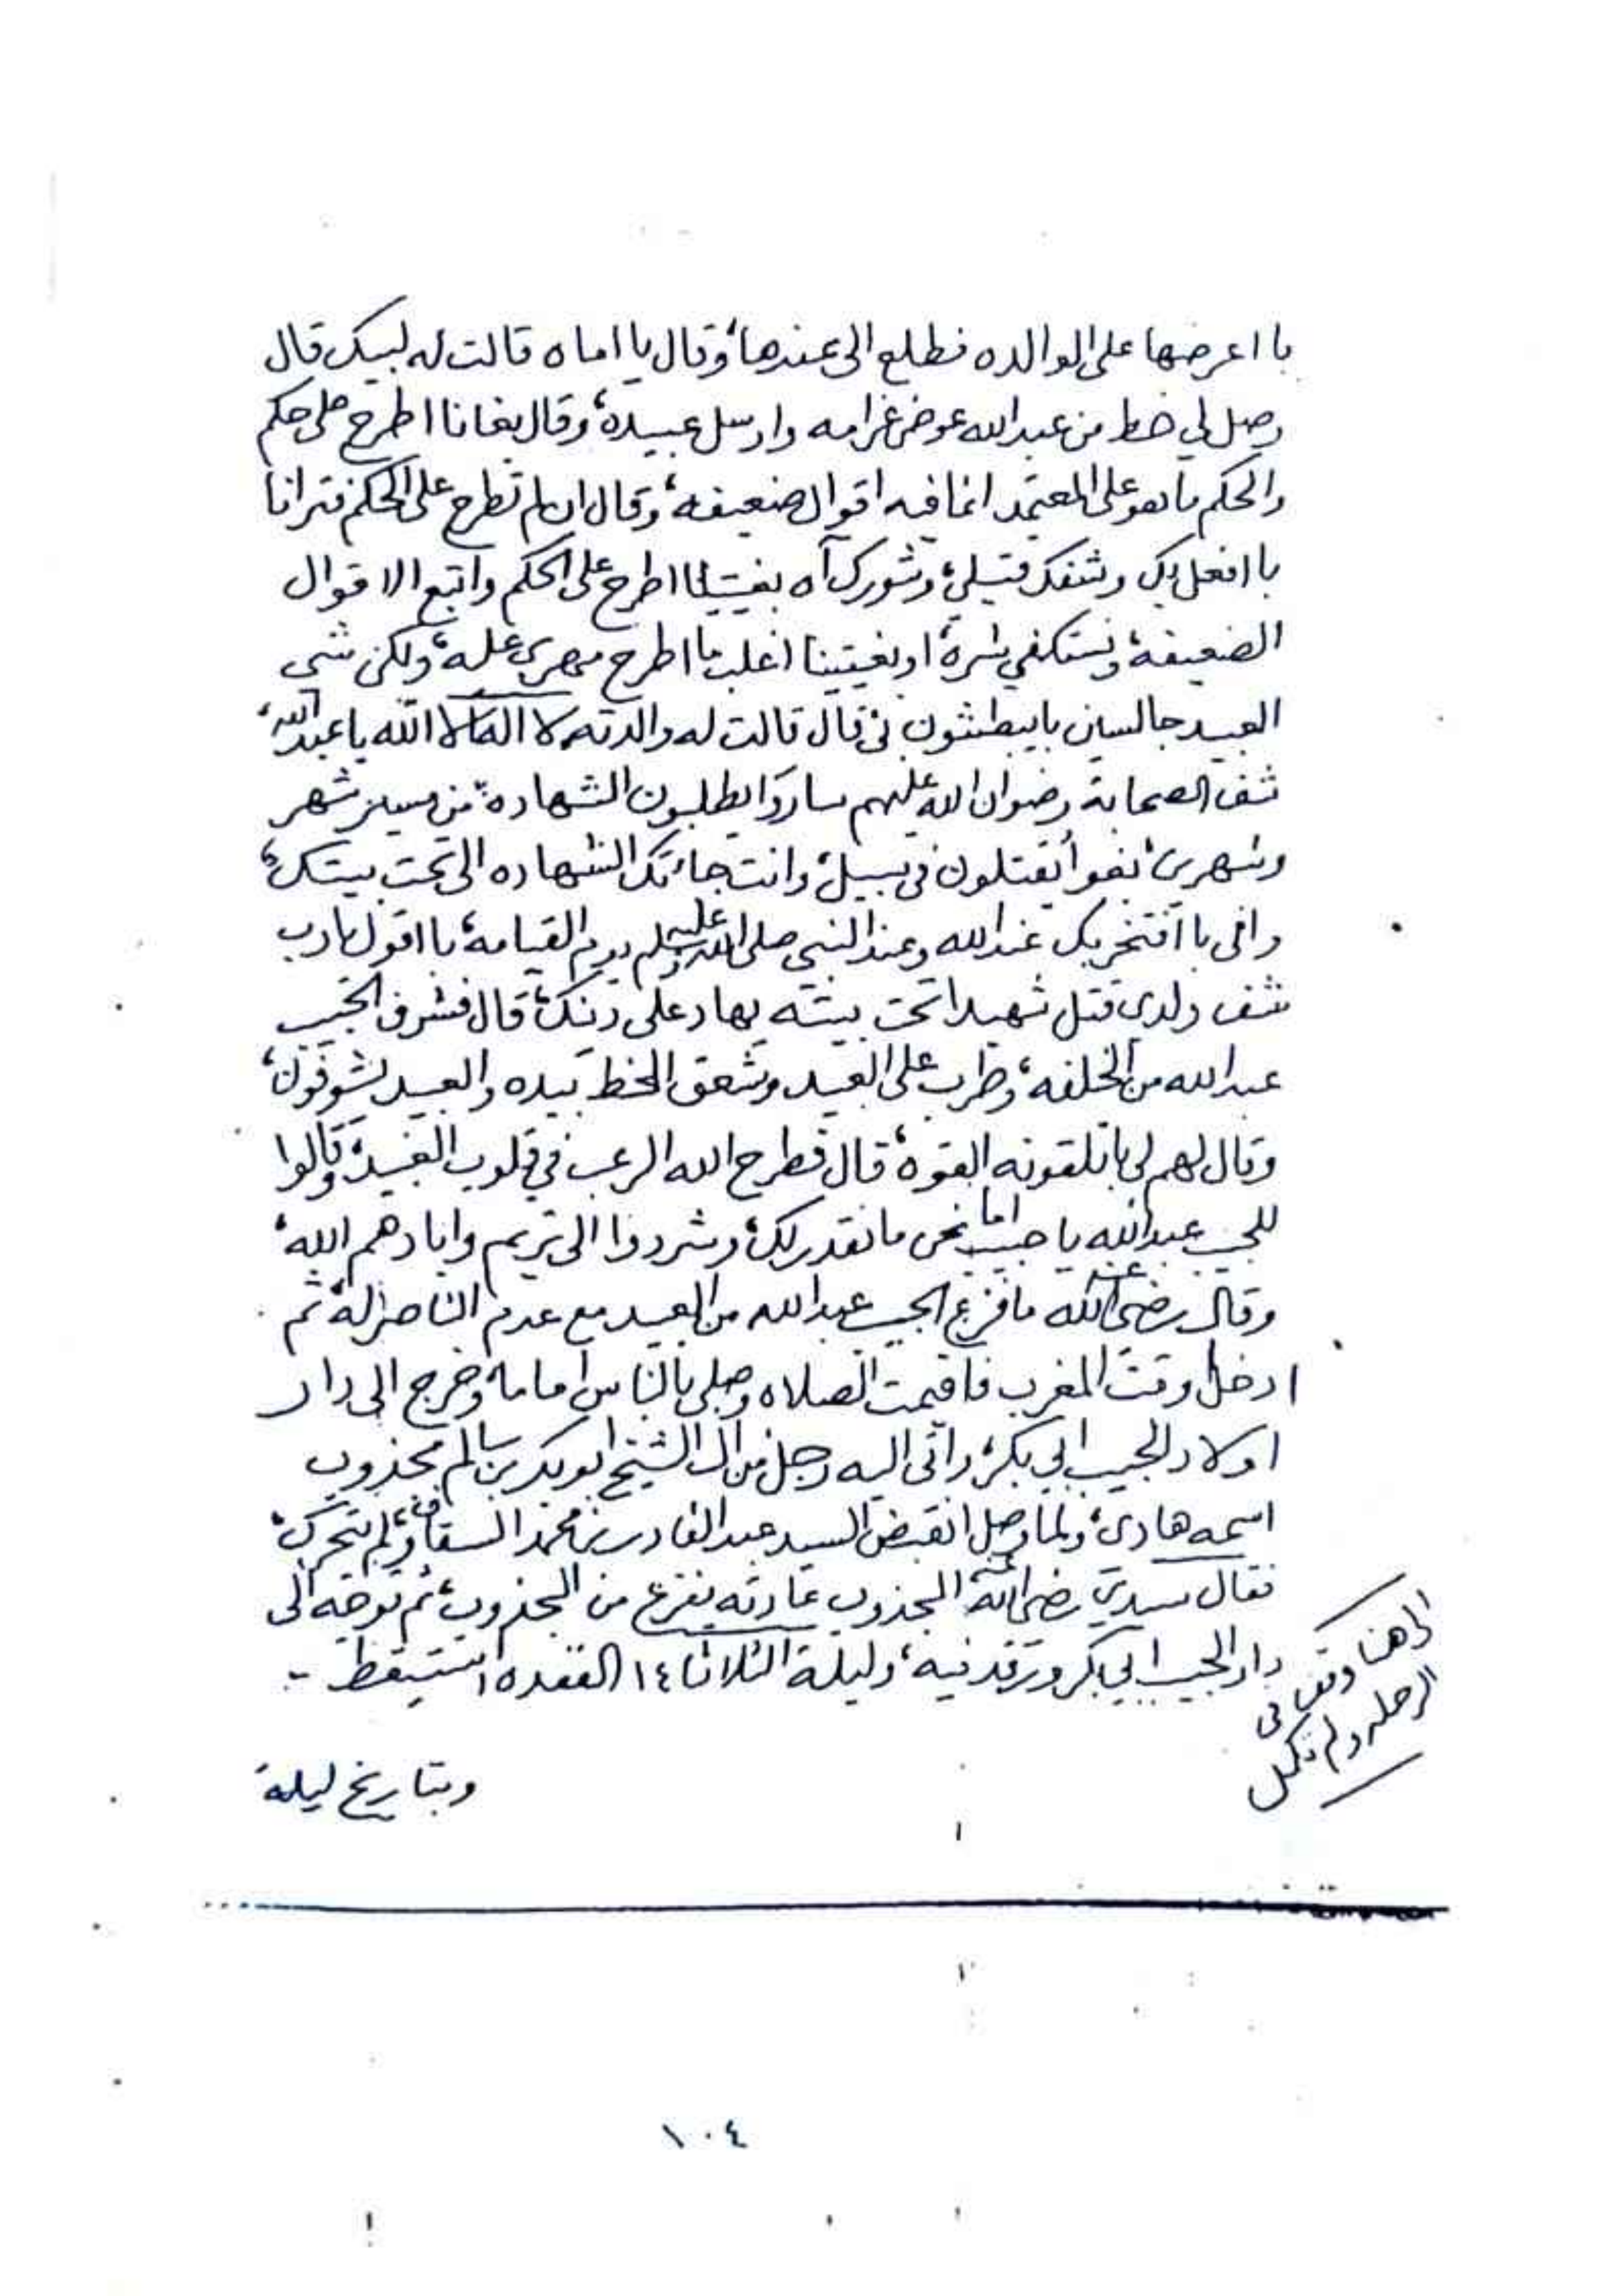 با اعرضها على الوالده فطلع الى عندها، وقال يا اماه قالت له لبيك قال
وصل لي خط من عبدالله عوض غرامه وارسل عبيده، وقال بغانا اطرح على حكم
والحكم ما هو على المعتمد انما فيه اقوال ضعيفه، وقال ان لم تطرح على الحكم فترانا
با افعل بك وشفك قتيلي، وشورك آه بغيتينا اطرح على الحكم واتبع الاقوال
الضعيفة، ونستكفي شره، او بغيتينا اغلب ما اطرح مهري عليه، ولكن شي
العبيد جالسين با يبطشون بي قال قالت له والدته لا اله الا الله يا عبدالله،
شف الصحابة رضوان الله عليهم ساروا يطلبون الشهاده من مسير شهر
وشهرين، بغوا يقتلون في سبيل، وانت جاءتك الشهاده الى تحت بيتك،
وانى با افتخر بك عند الله وعند النبي صلى الله عليه وسلم يوم القيامه، با اقول يا رب
شف ولدي قتل شهيدا تحت بيته يهاد على دينك، قال فشرف الحبيب
عبدالله من الخلفه، وطرب على العبيد وشعق الخط بيده والعبيد يشوفون،
وقال لهم لي با تلقونه القوه، قال فطرح الله الرعب في قلوب العبيد، وقالوا
للحبيب عبدالله يا حبيب اما نحن ما نقدر لك، وشردوا الى تريم وابادهم الله،
وقال رضي الله عنه ما فزع الحبيب عبدالله من العبيد مع عدم الناصر له، ثم
ادخل وقت المغرب فاقيمت الصلاه وصلى بالناس اماما، وخرج الى دار
اولاد الحبيب ابي بكر، واتى اليه رجل من آل الشيخ ابوبكر بن سالم مجذوب
اسمه هادي، ولما وصل انقبض السيد عبدالقادر بن محمد السقاف، ولم يتحرك،
فقال سيدي رضي الله عنه المجذوب عادته يفزع من المجذوب، ثم توجه الى
دار الحبيب ابي بكر ورقد فيه، وليلة الثلاثا ١٤ القعده استيقظ -
الى هنا وقف في
الرحله ولم تكمل
وبتاريخ ليلة
١٠٤